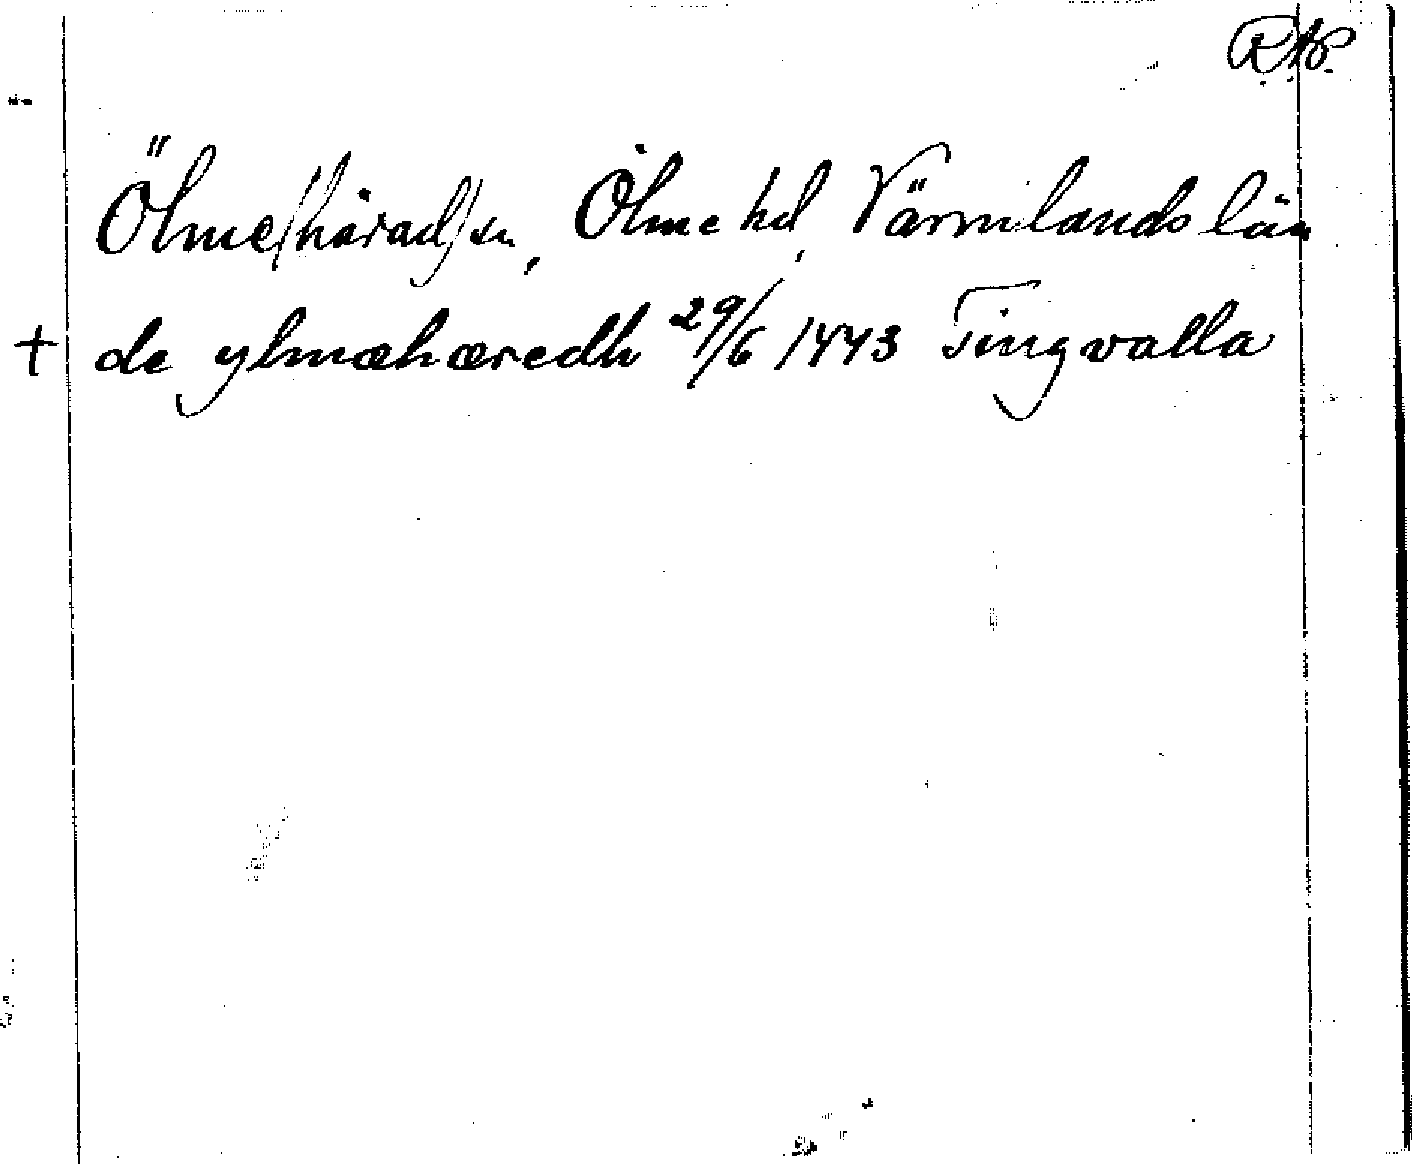 RAP.
Ölme(härad)sn, Ölme hd, Värmlands län
+ de ylmæhæredh 29/6 1443 Tingvalla